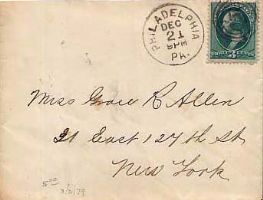 PHILADELPHIA
DEC
21
8PM
PA.
Miss Grace R Allen
21 East 127th St
New York